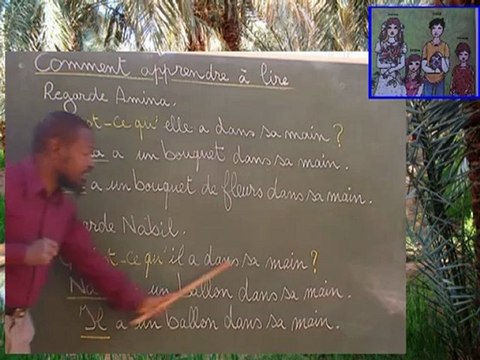 Comment apprendre à lire
Regarde Amina.
qu'elle a dans sa main ?
a un bouquet dans sa main.
a un bouquet de fleurs dans sa main.
Nabil.
qu'il a dans sa main ?
un ballon dans sa main.
Il a un ballon dans sa main.